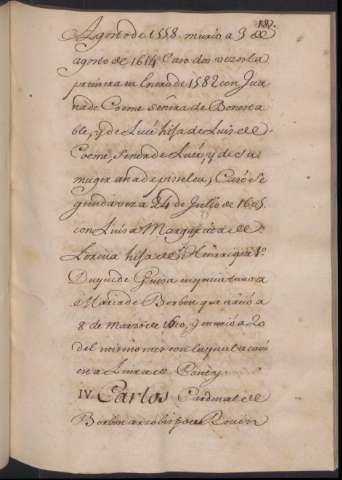 187.
Agosto de 1558 murio a 3 de
agosto de 1614 Caso dos vezes la
primera en Enero de 1582 con Jua
na de Coeme señora de Bonesta
ble, y de Lucé hija de Luis de
Coeme, Señor de Lucé, y de su
muger ana de pisseleu, Casó Se
gunda vez a 24 de Julio de 1605
con Luisa Margarita de
Lorena hija de Henrrique 1º
Duque de Guisa
a Maria de Borbon que nacio a
8 de Marzo de 1610, y murio a 20
del mismo mes con la qual caso
Conty
IV Carlos Cardenal de
Borbon arzobispo de Rouen